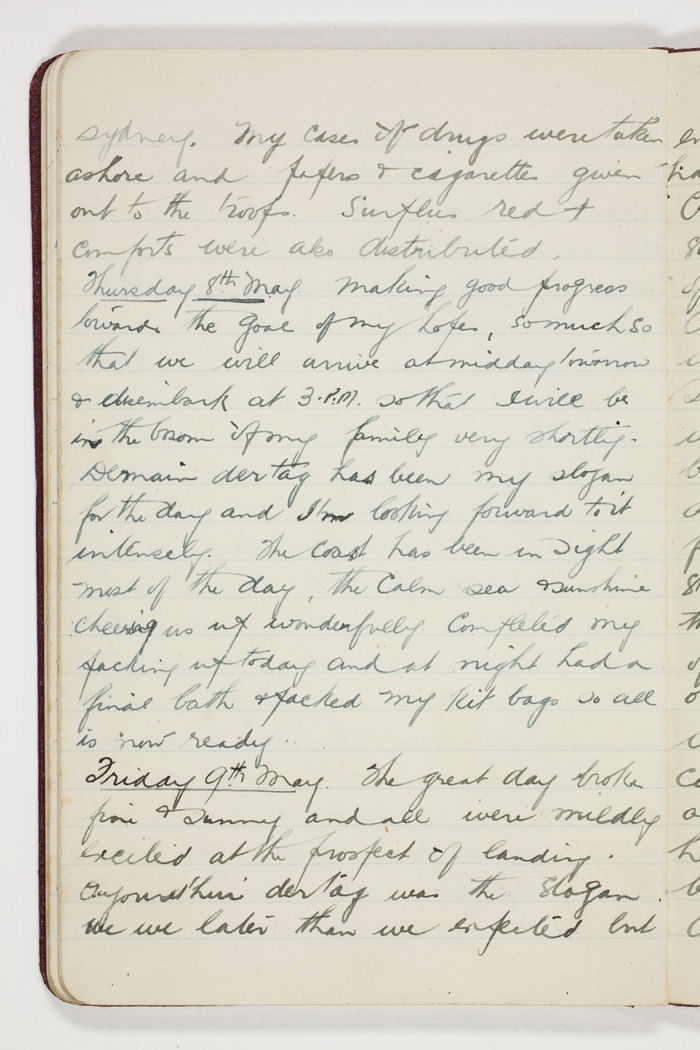 Sydney. My cases of drugs were taken
ashore and papers & cigarettes given
out to the troops. Surplus red +
comforts were also distributed.
Thursday 8th May. Making good progress
towards the goal of my hopes, so much so
that we will arrive at midday tomorrow
& disembark at 3.P.M. so that I will be
in the bosom of my family very shortly.
Demain der tag has been my slogan
for the day and I'm looking forward to it
intensely. The coast has been in sight
most of the day, the calm sea & sunshine
cheering us up wonderfully Completed my
packing up today and at night had a
final bath & packed my kit bags so all
is now ready.
Friday 9th May. The great day broke
fine & sunny and all were mildly
excited at the prospect of landing.
der tag was the slogan.
we later than we expected but